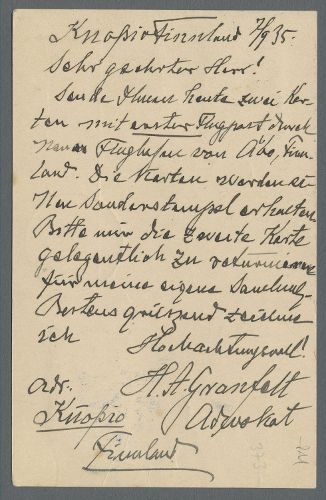 Knopio Finnland 7/9 35.
Sehr geehrter Herr!
Sende Ihnen heute zwei Kar-
ten mit erster Flugpost durch
neuen Flughafen von Åbo, Finn-
land. Die Karten werden ei-
nen Sonderstempel erhalten.
Bitte mir die zweite Karte
gelegentlich zu returnieren
für meine eigene Samlung.
Bestens grüssend zeichne
ich Hochachtungsvoll!
H. A. Granfelt
Adr. Advokat
Knopio
Finnland